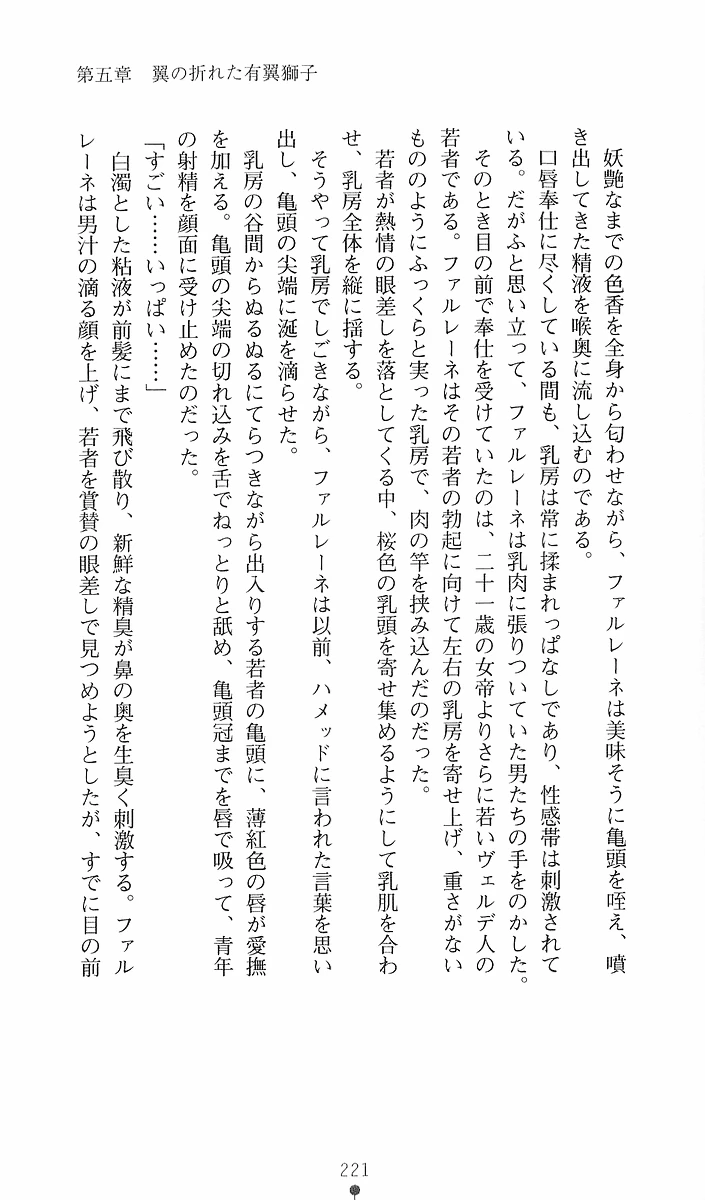 第五章　翼の折れた有翼獅子
妖艶なまでの色香を全身から匂わせながら、ファルレーネは美味そうに亀頭を咥え、噴
き出してきた精液を喉奥に流し込むのである。
口唇奉仕に尽くしている間も、乳房は常に揉まれっぱなしであり、性感帯は刺激されて
いる。だがふと思い立って、ファルレーネは乳肉に張りついていた男たちの手をのかした。
そのとき目の前で奉仕を受けていたのは、二十一歳の女帝よりさらに若いヴェルデ人の
若者である。ファルレーネはその若者の勃起に向けて左右の乳房を寄せ上げ、重さがない
もののようにふっくらと実った乳房で、肉の竿を挟み込んだのだった。
若者が熱情の眼差しを落としてくる中、桜色の乳頭を寄せ集めるようにして乳肌を合わ
せ、乳房全体を縦に揺する。
そうやって乳房でしごきながら、ファルレーネは以前、ハメッドに言われた言葉を思い
出し、亀頭の尖端に涎を滴らせた。
乳房の谷間からぬるぬるにてらつきながら出入りする若者の亀頭に、薄紅色の唇が愛撫
を加える。亀頭の尖端の切れ込みを舌でねっとりと舐め、亀頭冠までを唇で吸って、青年
の射精を顔面に受け止めたのだった。
「すごい……いっぱい……」
白濁とした粘液が前髪にまで飛び散り、新鮮な精臭が鼻の奥を生臭く刺激する。ファル
レーネは男汁の滴る顔を上げ、若者を賞賛の眼差しで見つめようとしたが、すでに目の前
221